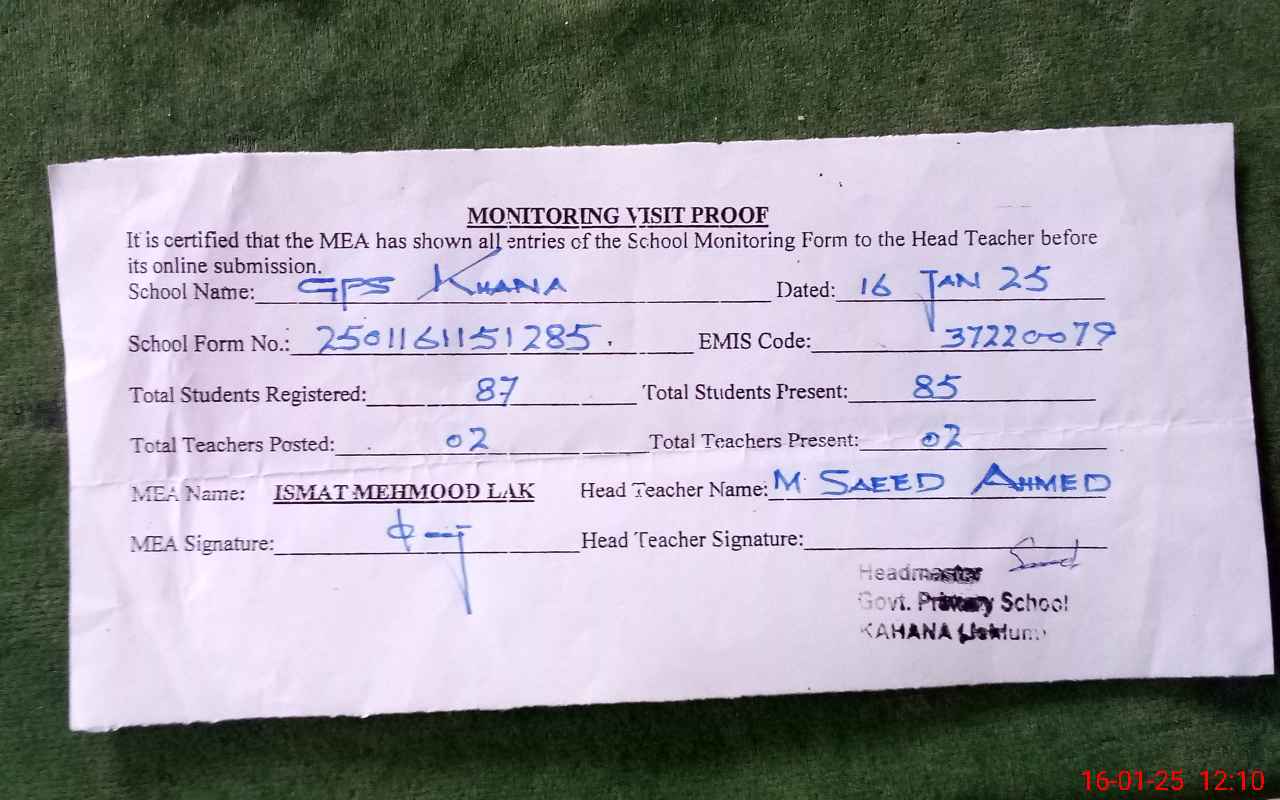 MONITORING VISIT PROOF
It is certified that the MEA has shown all entries of the School Monitoring Form to the Head Teacher before
its online submission.
School Name: GPS KHANA Dated: 16 JAN 25
School Form No.: 2501161151285 . EMIS Code: 37220079
Total Students Registered: 87 Total Students Present: 85
Total Teachers Posted: 02 Total Teachers Present: 02
MEA Name: ISMAT MEHMOOD LAK Head Teacher Name: M. SAEED AHMED
MEA Signature: Head Teacher Signature:
Headmaster
Govt. Primary School
KAHANA
16-01-25 12:10